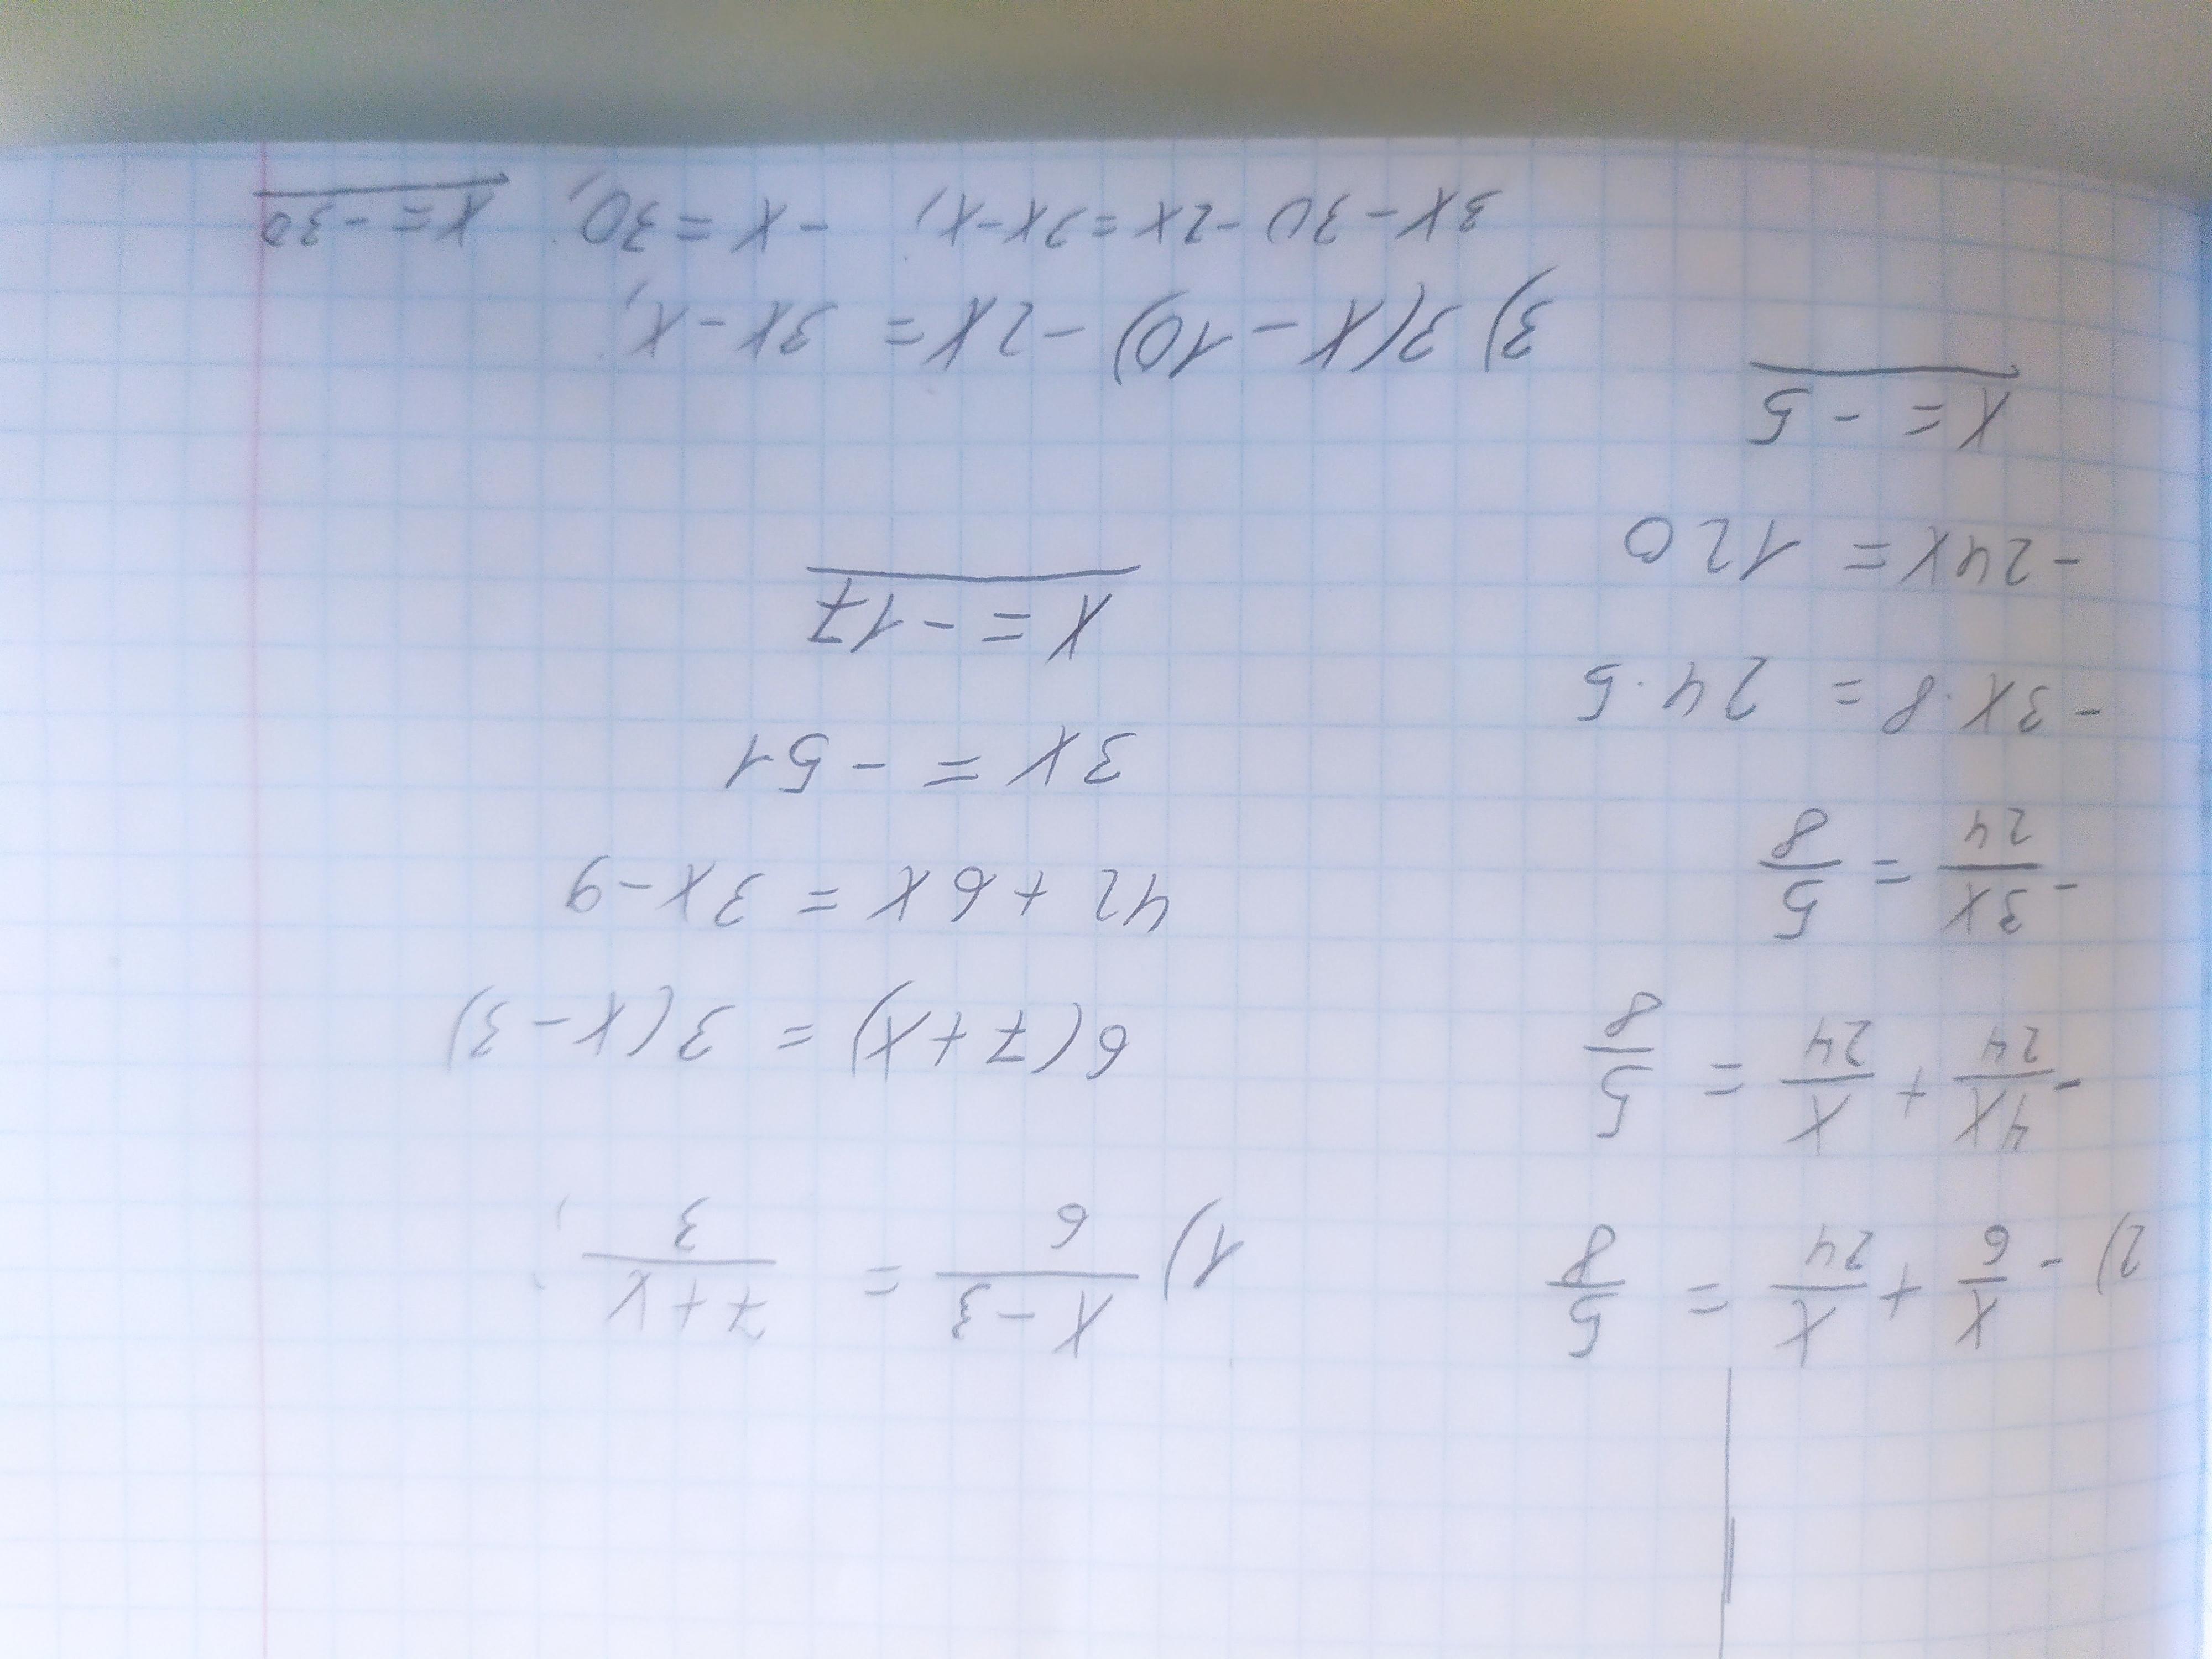 2) - x/6 + x/24 = 5/8
- 4x/24 + x/24 = 5/8
- 3x/24 = 5/8
- 3x · 8 = 24 · 5
- 24x = 120
x = - 5
1) x - 3/6 = 7 + x/3 ;
6(7 + x) = 3(x - 3)
42 + 6x = 3x - 9
3x = - 51
x = - 17
3) 3(x - 10) - 2x = 3x - x;
3x - 30 - 2x = 3x - x; - x = 30; x = - 30